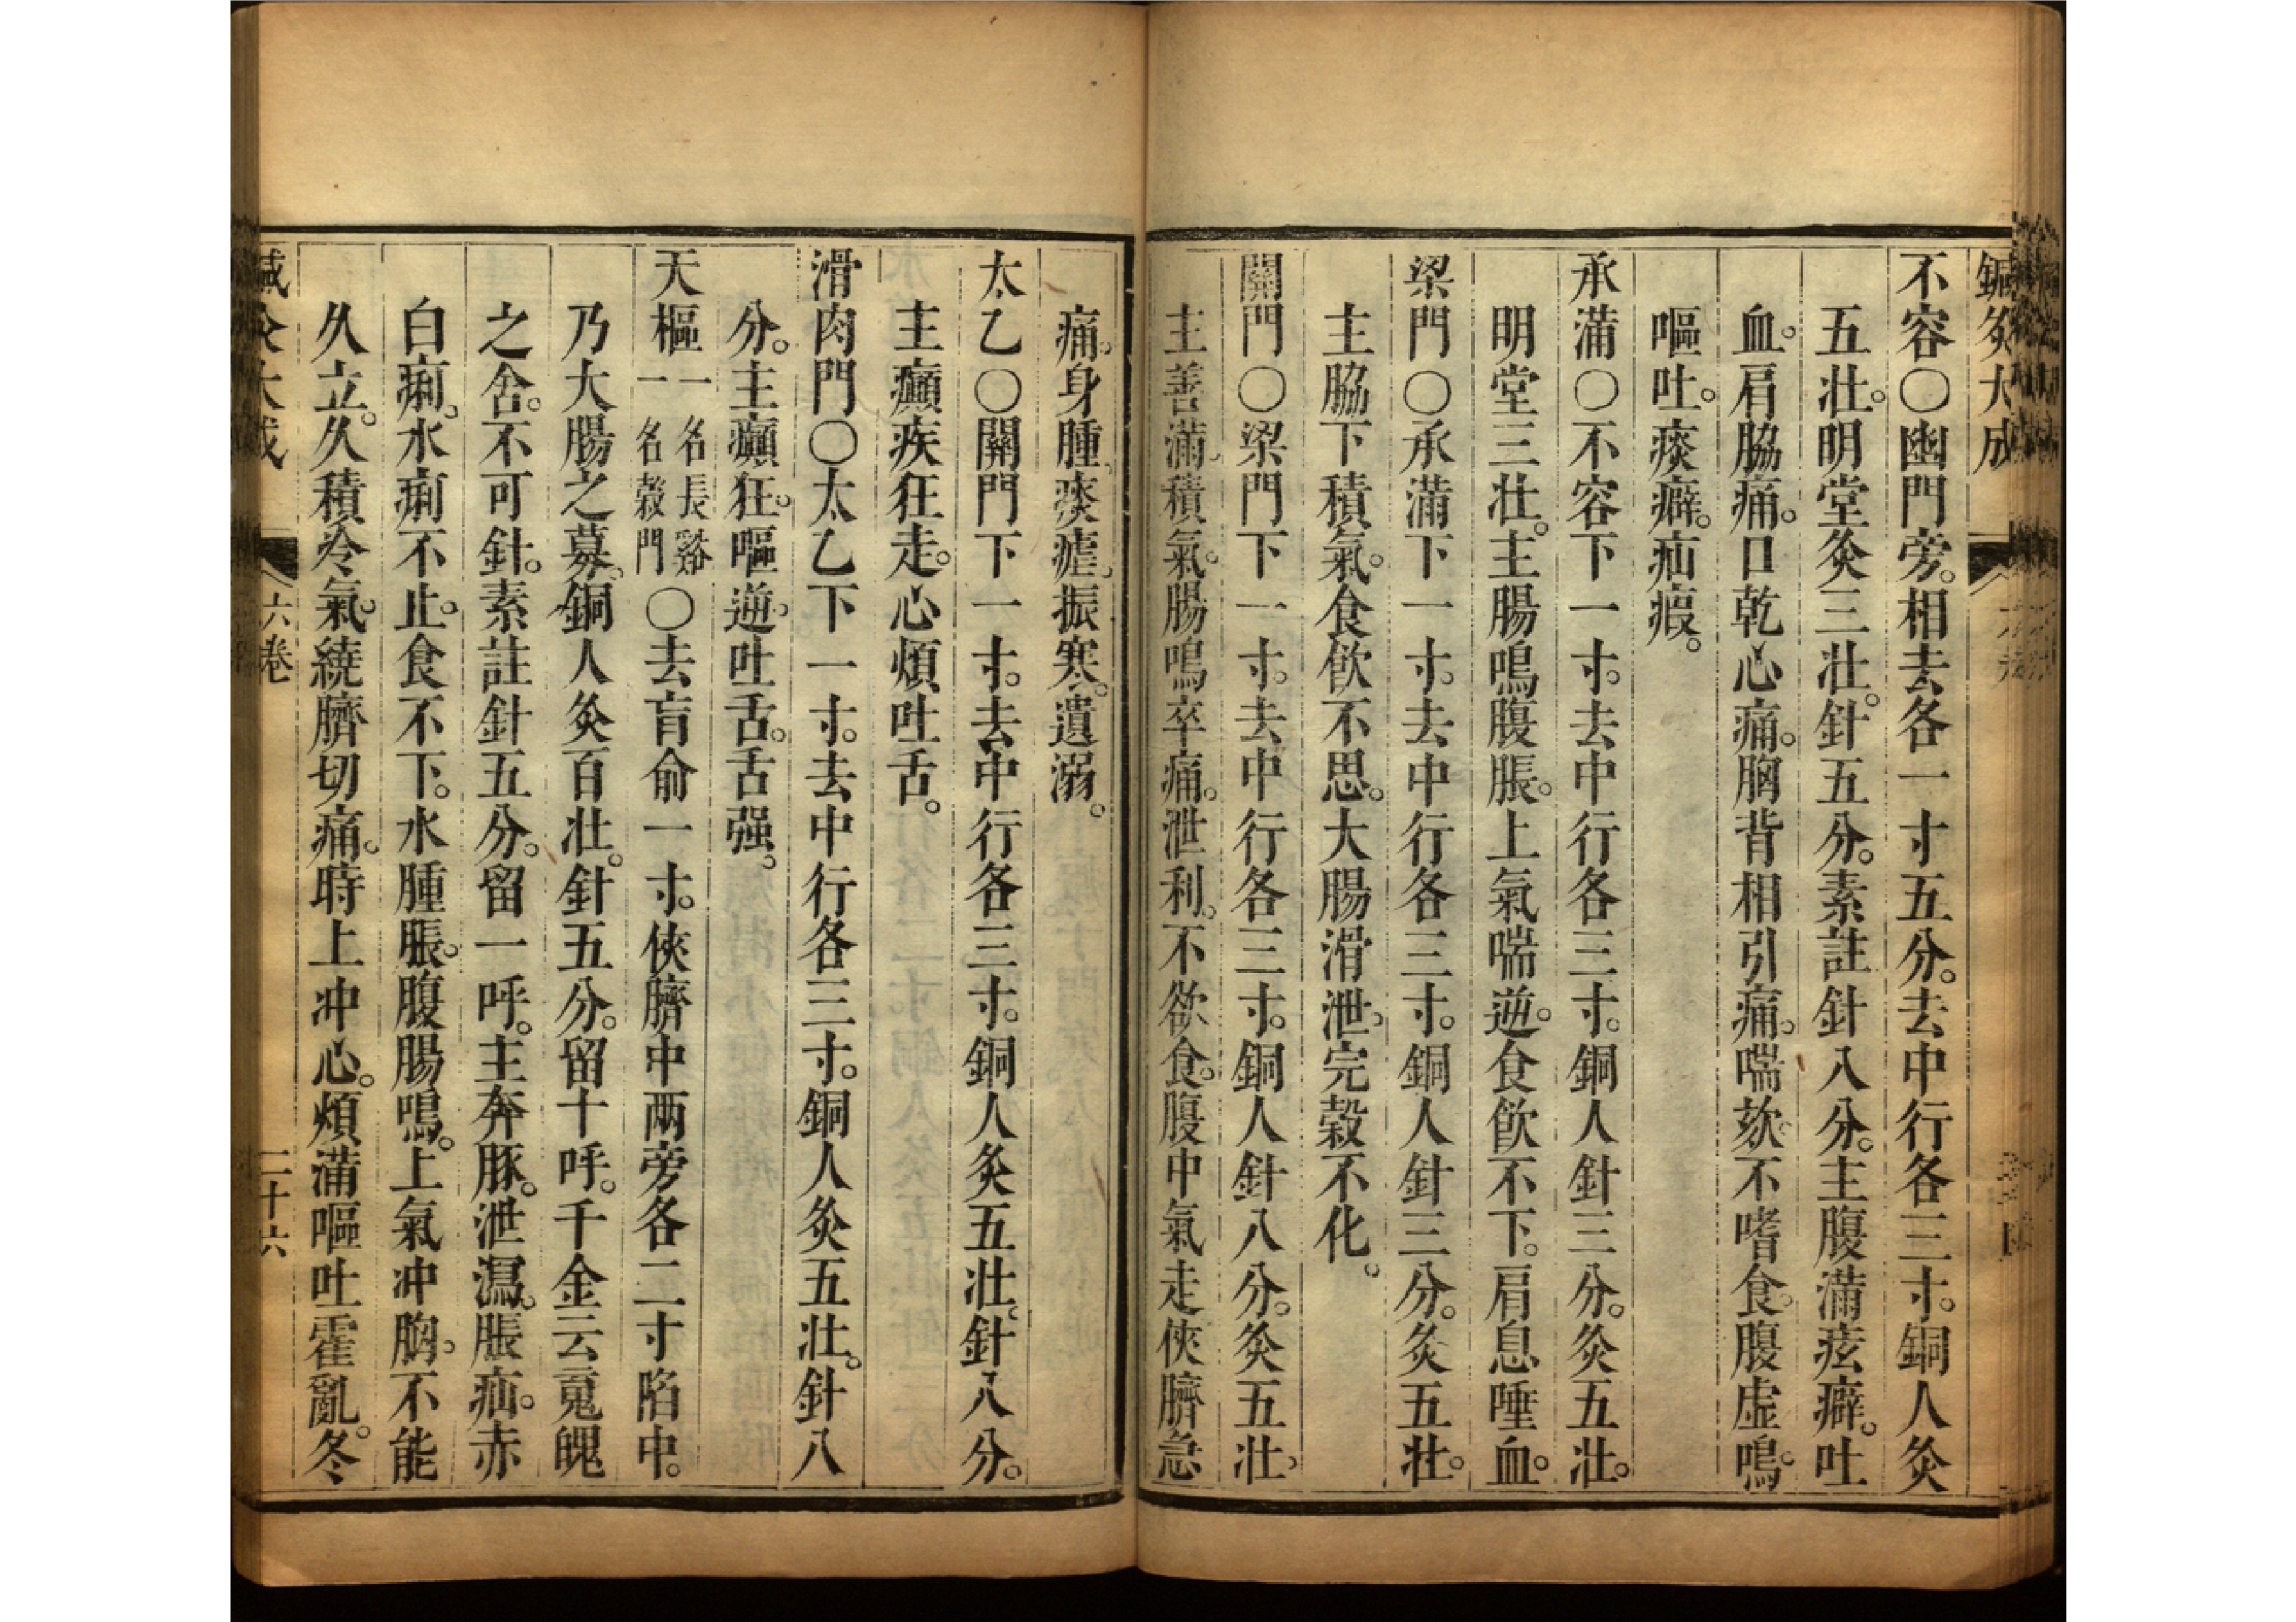 鍼灸大成
不容○幽門旁。相去各一寸五分。去中行各三寸。銅人灸
五壯。明堂灸三壯。針五分。素註針八分。主腹滿痃癖。吐
血。肩脇痛。口乾心痛。胸背相引痛。喘欬不嗜食。腹虛鳴。
嘔吐。痰癖。疝瘕。
承滿○不容下一寸。去中行各三寸。銅人針三分。灸五壯。
明堂三壯。主腸鳴腹脹。上氣喘逆。食飲不下。肩息唾血。
梁門○承滿下一寸。去中行各三寸。銅人針三分。灸五壯。
主脇下積氣。食飲不思。大腸滑泄。完穀不化。
關門○梁門下一寸。去中行各三寸。銅人針八分。灸五壯。
主善滿。積氣。腸鳴卒痛。泄利。不欲食。腹中氣走。俠臍急
痛。身腫。痰瘧。振寒。遺溺。
太乙○關門下一寸。去中行各三寸。銅人灸五壯。針八分。
主癲疾狂走。心煩吐舌。
滑肉門○太乙下一寸。去中行各三寸。銅人灸五壯。針八
分。主癲狂。嘔逆。吐舌。舌强。
天樞一名長谿一名穀門○去肓俞一寸。俠臍中兩旁各二寸陷中。
乃大腸之募。銅人灸百壯。針五分。留十呼。千金云䰟魄
之舍。不可針。素註針五分。留一呼。主奔豚。泄瀉。脹疝。赤
白痢。水痢不止。食不下。水腫脹。腹腸鳴。上氣冲胸。不能
久立。久積冷氣。繞臍切痛。時上冲心。煩滿嘔吐霍亂。冬
鍼灸大成 六卷 二十六